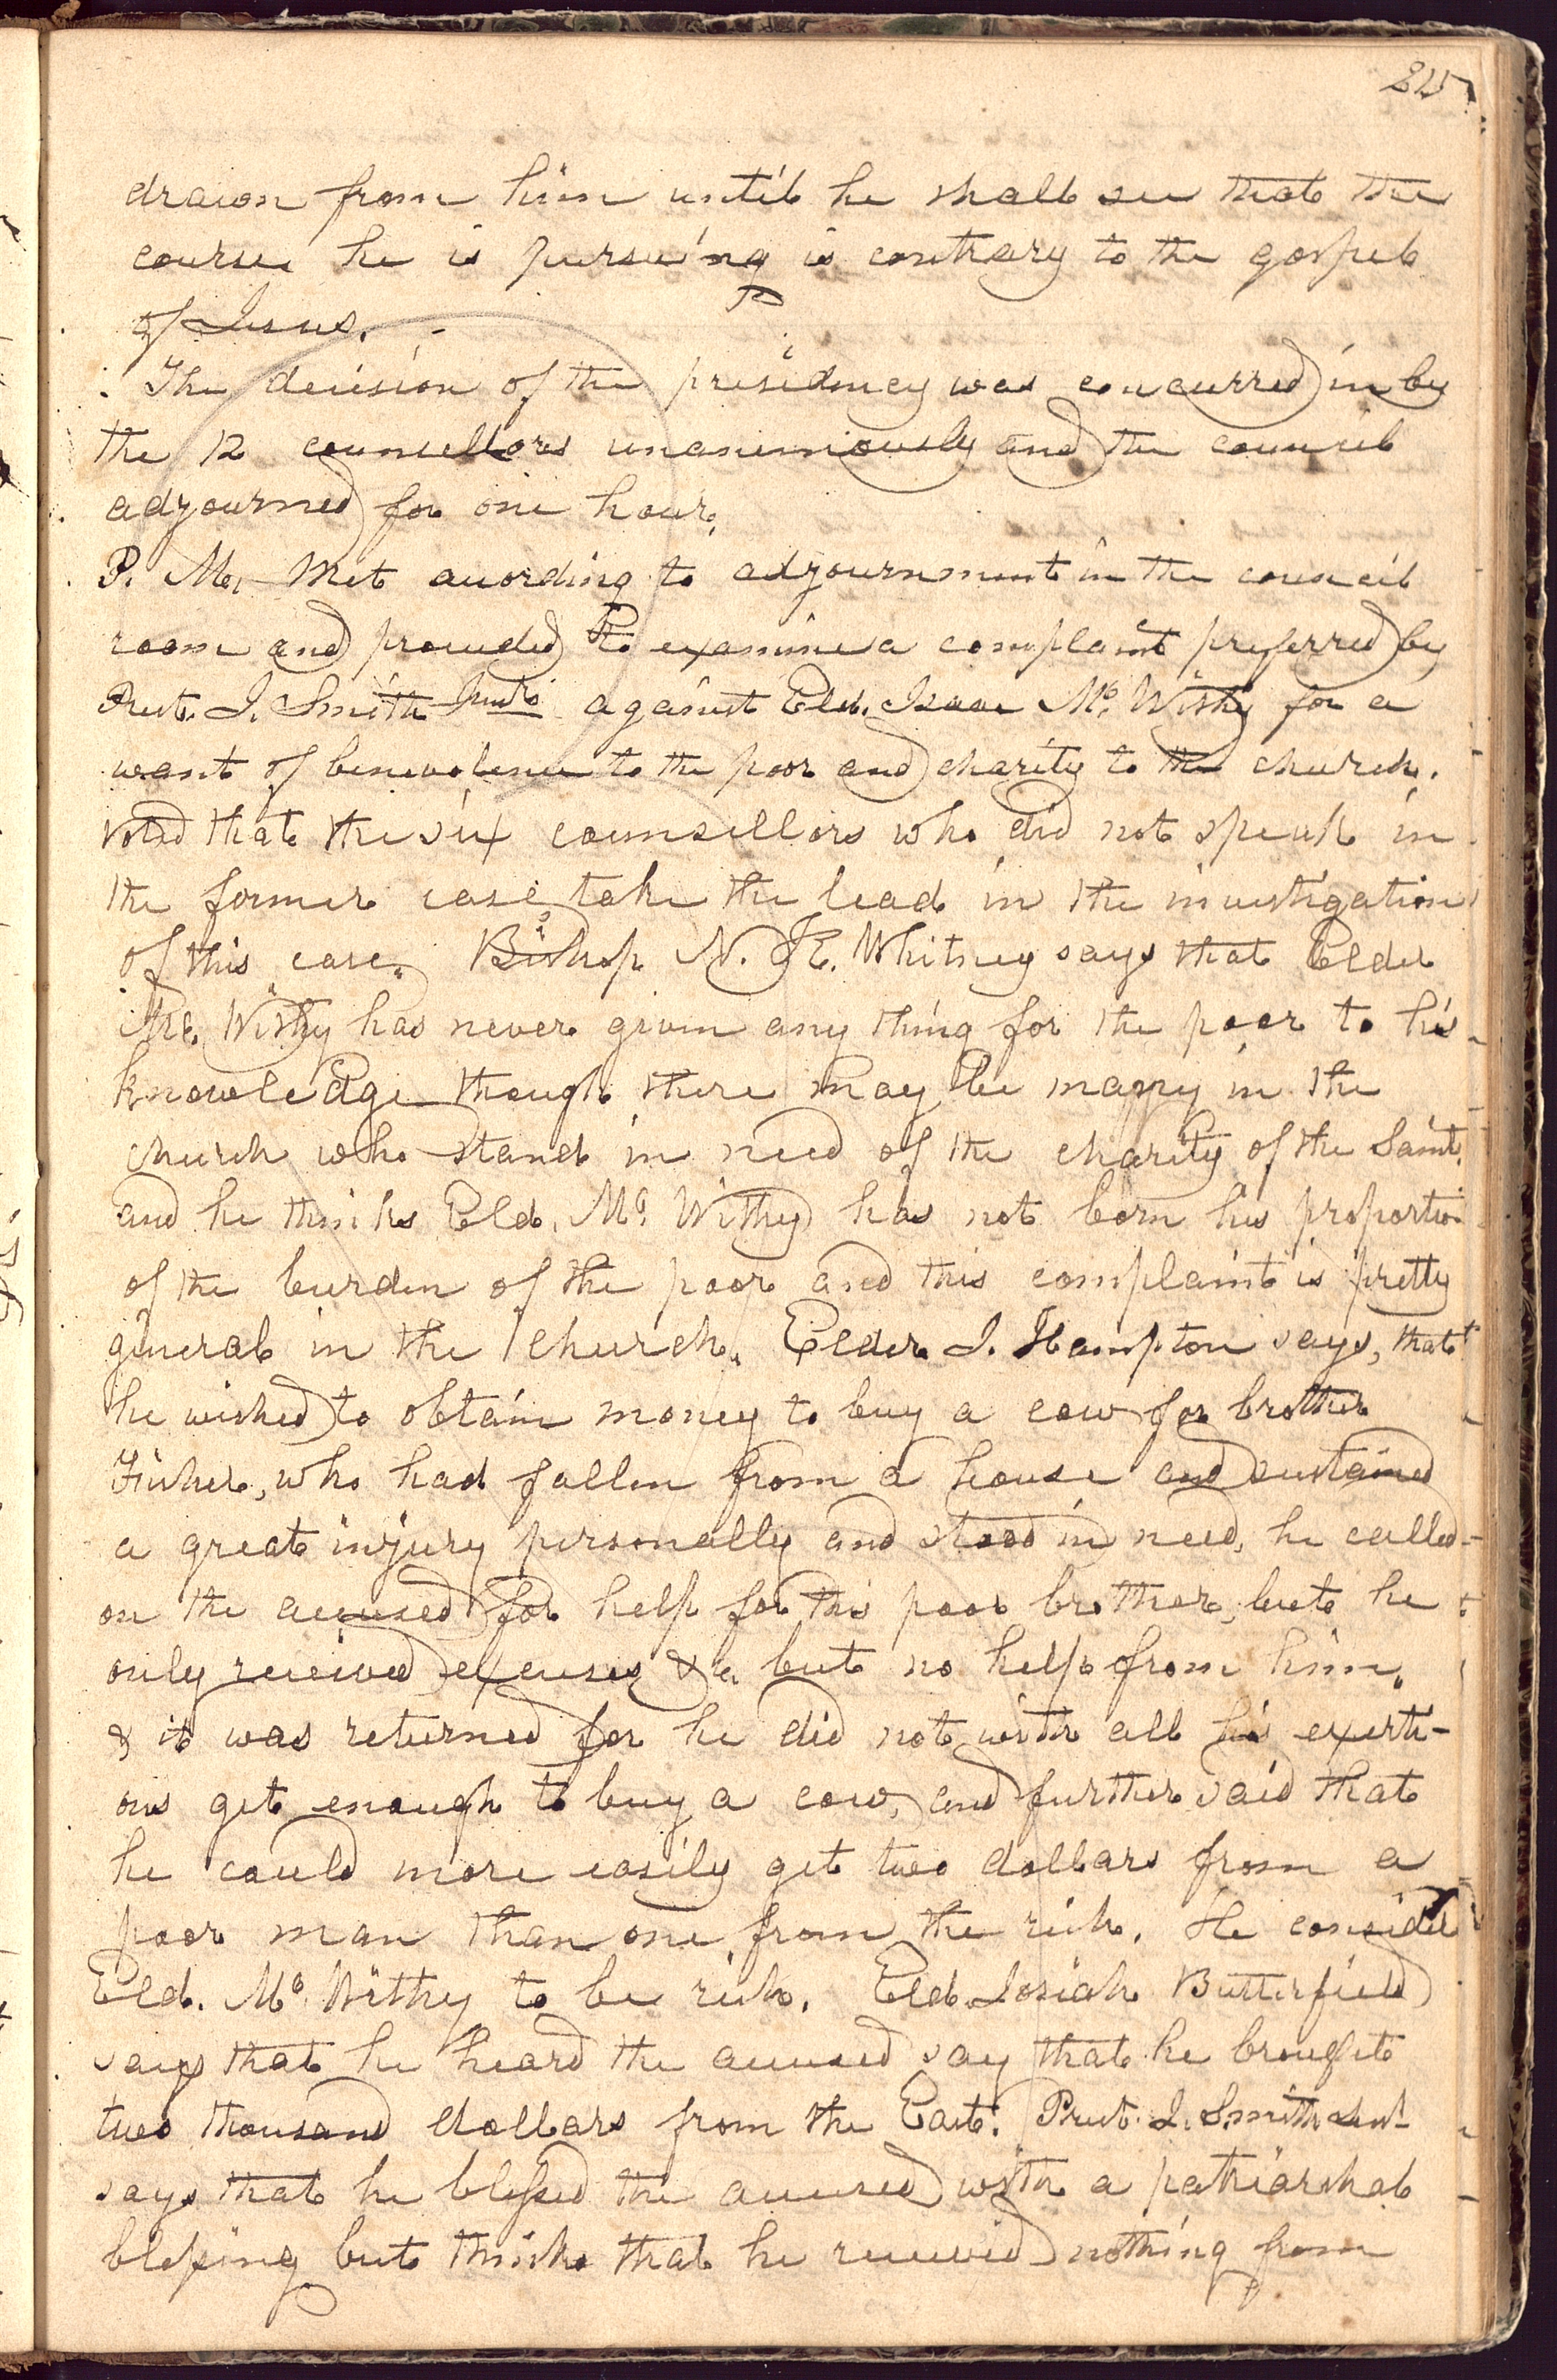 215
drawn from him until he shall see that the
course he is pursueing is contrary to the gospel
of Jesus. -
The decision of the presidency was concurred in by
the 12 counsellors unanimously and the council
adjourned for one hour,
P. M. Met according to adjournment in the council
room and proceeded to examine a complaint preferred by
Prest. J. Smith Junr. against Eld. Isaac Mc. Withy for a
want of benevolence to the poor and charity to the church.
voted that the six counsellors who did not speak in
the former case take the lead in the investigation
of this case. Bishop N. K. Whitney says that Elder
Mc. Withy has never given any thing for the poor to his
knowledge though there may be many in the
church who stand in need of the charity of the Saints
and he thinks Eld. Mc. Withy has not born his proportion
of the burden of the poor and this complaint is pretty
general in the church. Elder J. Hampton says, that
he wished to obtain money to buy a cow for brother
Fisher, who had fallen from a house and sustained
a great injury personally and stood in need, he called
on the accused for help for this poor brother, but he
only received excuses &c but no help from him.
& it was returned for he did not with all his exerti-
ons get enough to buy a cow, and further said that
he could more easily get two dollars from a
poor man than one from the rich. He consider
Eld. Mc. Withy to be rich. Eld. Josiah Butterfield
says that he heard the accused say that he brought
two thousand dollars from the East. Prest. J. Smith Sen.
says that he blessed the accused with a patriarchal
blessing but thinks that he received nothing from